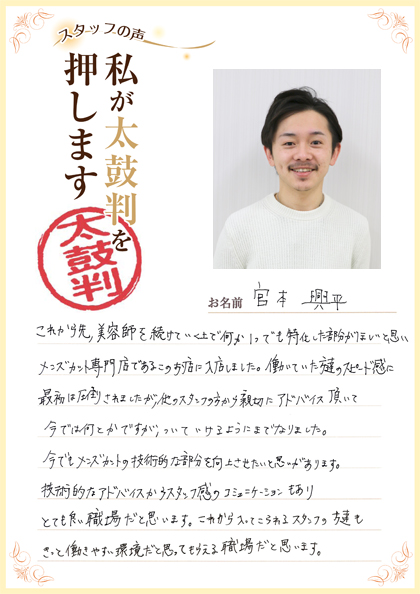 スタッフの声
私が太鼓判を
押します
太鼓判
お名前 宮本 興平
これから先、美容師を続けていく上で何か1つでも特化した部分がほしいと思い
メンズカット専門店であるこのお店に入店しました。働いていた達のスピード感に
最初は圧倒されましたが、他のスタッフの方から親切にアドバイス頂いて
今では何とかですが、ついていけるようにまでなりました。
今でもメンズカットの技術的な部分を向上させたいと思いがあります。
技術的なアドバイスからスタッフ感のコミュニケーションもあり
とても良い職場だと思います。これから入ってこられるスタッフの達も
きっと働きやすい環境だと思ってもらえる職場だと思います。